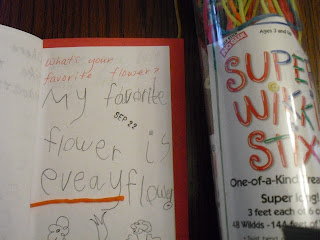 whats your
favorite flower?
My favorite
SEP 22
flower is
eveay flower
Ages 3 and
SUPER
WIKKI
STIX
One-of-a-Kind
Super long!
3 feet each
48 Wikkis - 144 feet of